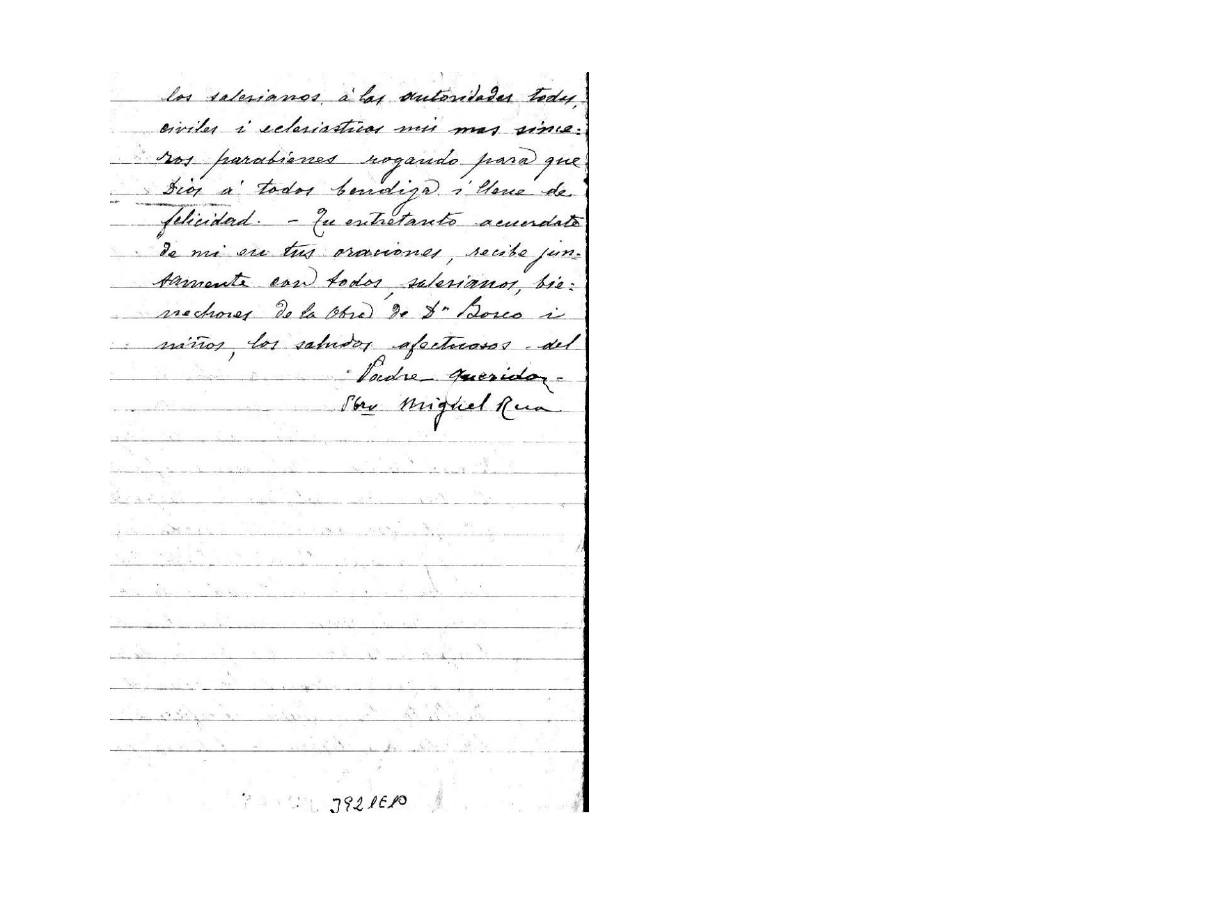 los salesianos, á las autoridades todas,
civiles i eclesiasticas mis mas since:
ros parabienes rogando para que
Dios á todos bendiga i llene de
felicidad. - Tu entretanto acuerdate
de mi en tus oraciones, recibe jun-
tamente con todos, salesianos, bie:
nechores de la Obra de Dn Bosco i
niños, los saludos afectuosos del
Padre querido,-
Pbro Miguel Rua
3921E10